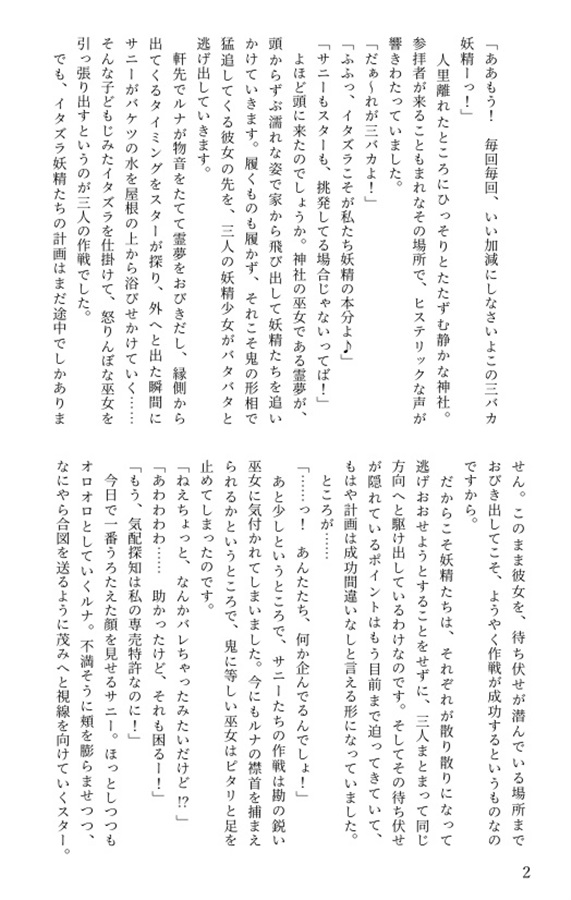 「ああもう！　毎回毎回、いい加減にしなさいよこの三バカ
妖精ーっ！」
　人里離れたところにひっそりとたたずむ静かな神社。
参拝者が来ることもまれなその場所で、ヒステリックな声が
響きわたっていました。
「だぁ〜れが三バカよ！」
「ふふっ、イタズラこそが私たち妖精の本分よ♪」
「サニーもスターも、挑発してる場合じゃないってば！」
　よほど頭に来たのでしょうか。神社の巫女である霊夢が、
頭からずぶ濡れな姿で家から飛び出して妖精たちを追い
かけていきます。履くものも履かず、それこそ鬼の形相で
猛追してくる彼女の先を、三人の妖精少女がバタバタと
逃げ出していきます。
　軒先でルナが物音をたてて霊夢をおびきだし、縁側から
出てくるタイミングをスターが探り、外へと出た瞬間に
サニーがバケツの水を屋根の上から浴びせかけていく……
そんな子どもじみたイタズラを仕掛けて、怒りんぼな巫女を
引っ張り出すというのが三人の作戦でした。
　でも、イタズラ妖精たちの計画はまだ途中でしかありま
せん。このまま彼女を、待ち伏せが潜んでいる場所まで
おびき出してこそ、ようやく作戦が成功するというものなの
ですから。
　だからこそ妖精たちは、それぞれが散り散りになって
逃げおおせようとすることをせずに、三人まとまって同じ
方向へと駆け出しているわけなのです。そしてその待ち伏せ
が隠れているポイントはもう目前まで迫ってきていて、
もはや計画は成功間違いなしと言える形になっていました。
　ところが……
「……っ！　あんたたち、何か企んでるんでしょ！」
　あと少しというところで、サニーたちの作戦は勘の鋭い
巫女に気付かれてしまいました。今にもルナの襟首を捕まえ
られるかというところで、鬼に等しい巫女はピタリと足を
止めてしまったのです。
「ねえちょっと、なんかバレちゃったみたいだけど!?」
「あわわわわ……　助かったけど、それも困るー！」
「もう、気配探知は私の専売特許なのに！」
　今日で一番うろたえた顔を見せるサニー。ほっとしつつも
オロオロとしていくルナ。不満そうに頬を膨らませつつ、
なにやら合図を送るように茂みへと視線を向けていくスター。
2